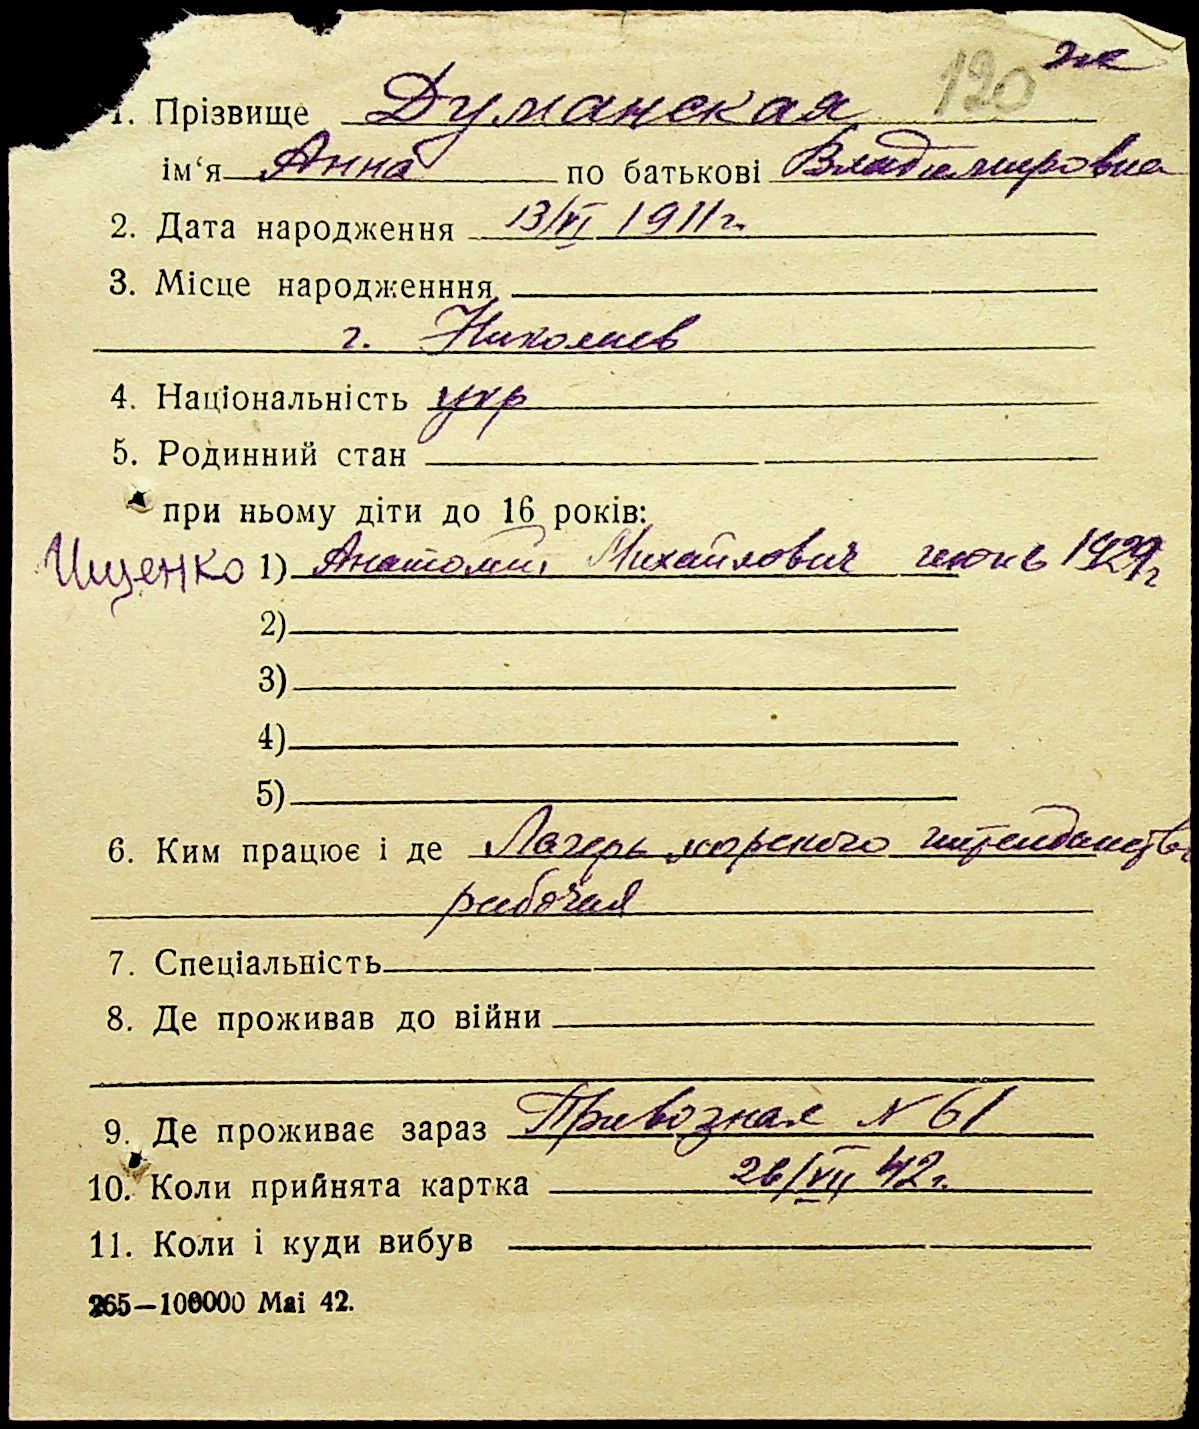 120 эк
1. Прізвище Думанская
ім‘я Анна по батькові Владимировна
2. Дата народження 13/VI 1911 г.
3. Місце народженння
г. Николаев
4. Національність укр
5. Родинний стан
при ньому діти до 16 років:
Ищенко 1) Анатолий Михайлович июнь 1929 г
2)
3)
4)
5)
6. Ким працює і де Лагерь морского интенданства
рабочая
7. Спеціальність
8. Де проживав до війни
9. Де проживає зараз Привозная № 61
10. Коли прийнята картка 26/VII 42 г.
11. Коли і куди вибув
265—100000 Маі 42.